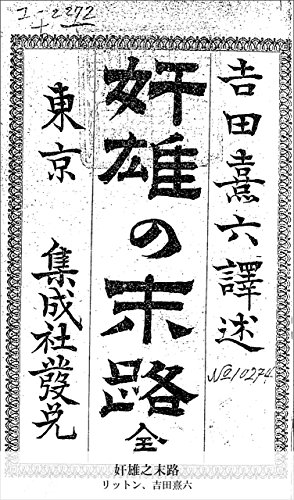 エ-2272
吉田熹六譯述
奸雄の末路 全
東京 集成社發兌
No 10274
奸雄之末路
リットン、吉田熹六